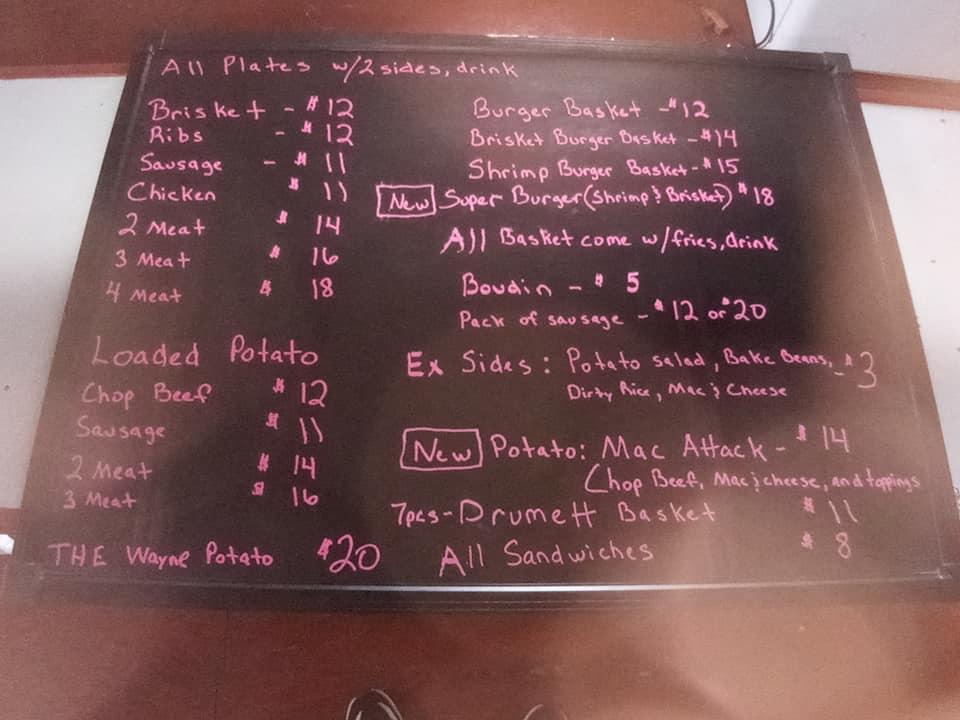 All Plates w/2 sides, drink
Brisket - $12
Ribs - $12
Sausage - $11
Chicken $11
2 Meat $14
3 Meat $16
4 Meat $18
Loaded Potato
Chop Beef $12
Sausage $11
2 Meat $14
3 Meat $16
THE Wayne Potato $20
Burger Basket - $12
Brisket Burger Basket - $14
Shrimp Burger Basket - $15
New Super Burger (Shrimp & Brisket) $18
All Basket come w/fries, drink
Boudin - $5
Pack of sausage - $12 or $20
Ex Sides: Potato salad, Bake Beans, - $3
Dirty Rice, Mac & Cheese
New Potato: Mac Attack - $14
Chop Beef, Mac & cheese, and toppings
7pcs - Drumett Basket $11
All Sandwiches $8